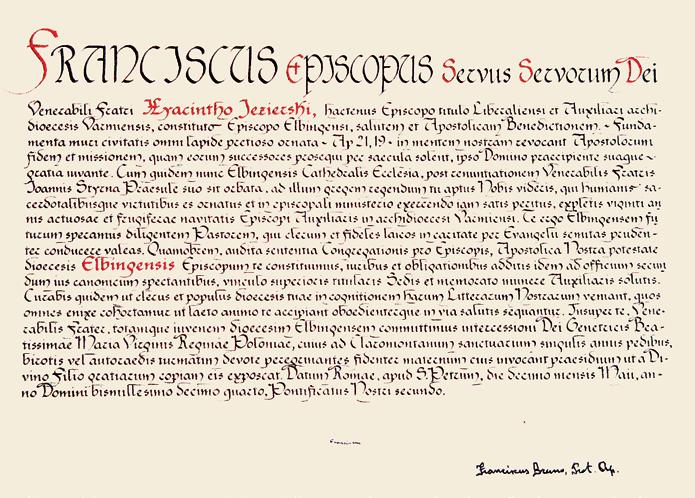 FRANCISCUS EPISCOPUS Servus Servorum Dei
Venerabili Fratri Hyacintho Jezierski, hactenus Episcopo titulo Liberaliensi et Auxiliari archi-
dioecesis Varmiensis, constituto Episcopo Elbingensi, salutem et Apostolicam Benedictionem. Funda-
menta muri civitatis omni lapide pretioso ornata - Ap 21, 19 - in mentem nostram revocant Apostolorum
fidem et missionem, quam eorum successores prosequi per saecula solent, ipso Domino praecipiente suaque
gratia iuvante. Cum quidem nunc Elbingensis Cathedralis Ecclesia, post renuntiationem Venerabilis Fratris
Joannis Styrna Praesule suo sit orbata, ad illum gregem regendum tu aptus Nobis videris, qui humanis sa-
cerdotalibusque virtutibus es ornatus et in episcopali ministerio exercendo iam satis peritus, expletis viginti an
nis actuosae et frugiferae navitatis Episcopi Auxiliaris in archidioecesi Varmiensi. Te ergo Elbingensem fu
turum speramus diligentem Pastorem, qui clerum et fideles laicos in caritate per Evangelii semitas pruden-
ter conducere valeas. Quamobrem, audita sententia Congregationis pro Episcopis, Apostolica Nostra potestate
dioecesis Elbingensis Episcopum te constituimus, iuribus et obligationibus additis idem ad officium secun
dum ius canonicum spectantibus, vinculo superioris titularis Sedis et memorato munere Auxiliaris solutis.
Curabis quidem ut clerus et populus dioecesis tuae in cognitionem harum Litterarum Nostrarum veniant, quos
omnes enixe cohortamur ut laeto animo te accipiant oboedienterque in via salutis sequantur. Insuper te, Vene-
rabilis Frater, totamque iuvenem dioecesim Elbingensem committimus intercessioni Dei Genetricis Bea-
tissimae Maria Virginis Reginae Poloniae, cuius ad Claromontanum sanctuarium singulis annis pedibus,
birotis vel autoraedis turmatim devote peregrinantes fidenter maternum eius invocant praesidium ut a Di-
vino Filio gratiarum copiam eis exposcat. Datum Romae, apud S. Petrum, die decimo mensis Maii, an-
no Domini bismillesimo decimo quarto, Pontificatus Nostri secundo.
Franciscus
Franciscus Bruno, Prot. Ap.